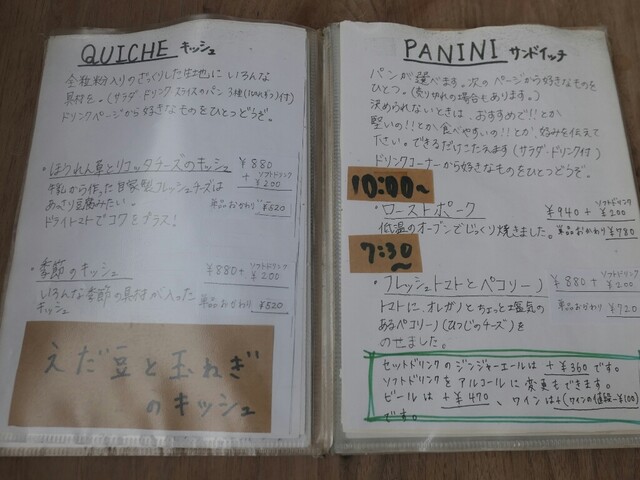 QUICHE キッシュ
全粒粉入りのざっくりした生地に いろんな
具材を。(サラダ ドリンク スライスのパン 3種(1個ずつ)付)
ドリンクページから好きなものをひとつどうぞ。
・ほうれん草とリコッタチーズのキッシュ ¥880
ソフトドリンク
+ ¥200
牛乳から作った自家製フレッシュチーズは
あっさり豆腐みたい。 単品おかわり ¥520
ドライトマトでコクをプラス!
・季節のキッシュ ¥880+ ソフトドリンク ¥200
いろんな季節の具材が入った
キッシュ 単品おかわり ¥520
えだ豆と玉ねぎ
のキッシュ
PANINI サンドイッチ
パンが選べます。次のページから好きなものを
ひとつ。(売り切れの場合もあります。)
決められないときは、おすすめで!!とか
堅いの!!とか食べやすいの!!とか、好みを伝えて
下さい。できるだけこたえます(サラダ・ドリンク付)
ドリンクコーナーから好きなものをひとつどうぞ。
10:00~
・ローストポーク ¥940 + ソフトドリンク ¥200
低温のオーブンでじっくり焼きました。 単品おかわり ¥780
7:30~
・フレッシュトマトとペコリーノ ¥880 + ソフトドリンク ¥200
トマトに、オレガノとちょっと塩気の 単品おかわり ¥720
あるペコリーノ(ひつじのチーズ)を
のせました。
セットドリンクのジンジャーエールは + ¥360 です。
ソフトドリンクをアルコールに変更もできます。
ビールは + ¥470 、ワインは +(ワインの値段-¥100)
です。